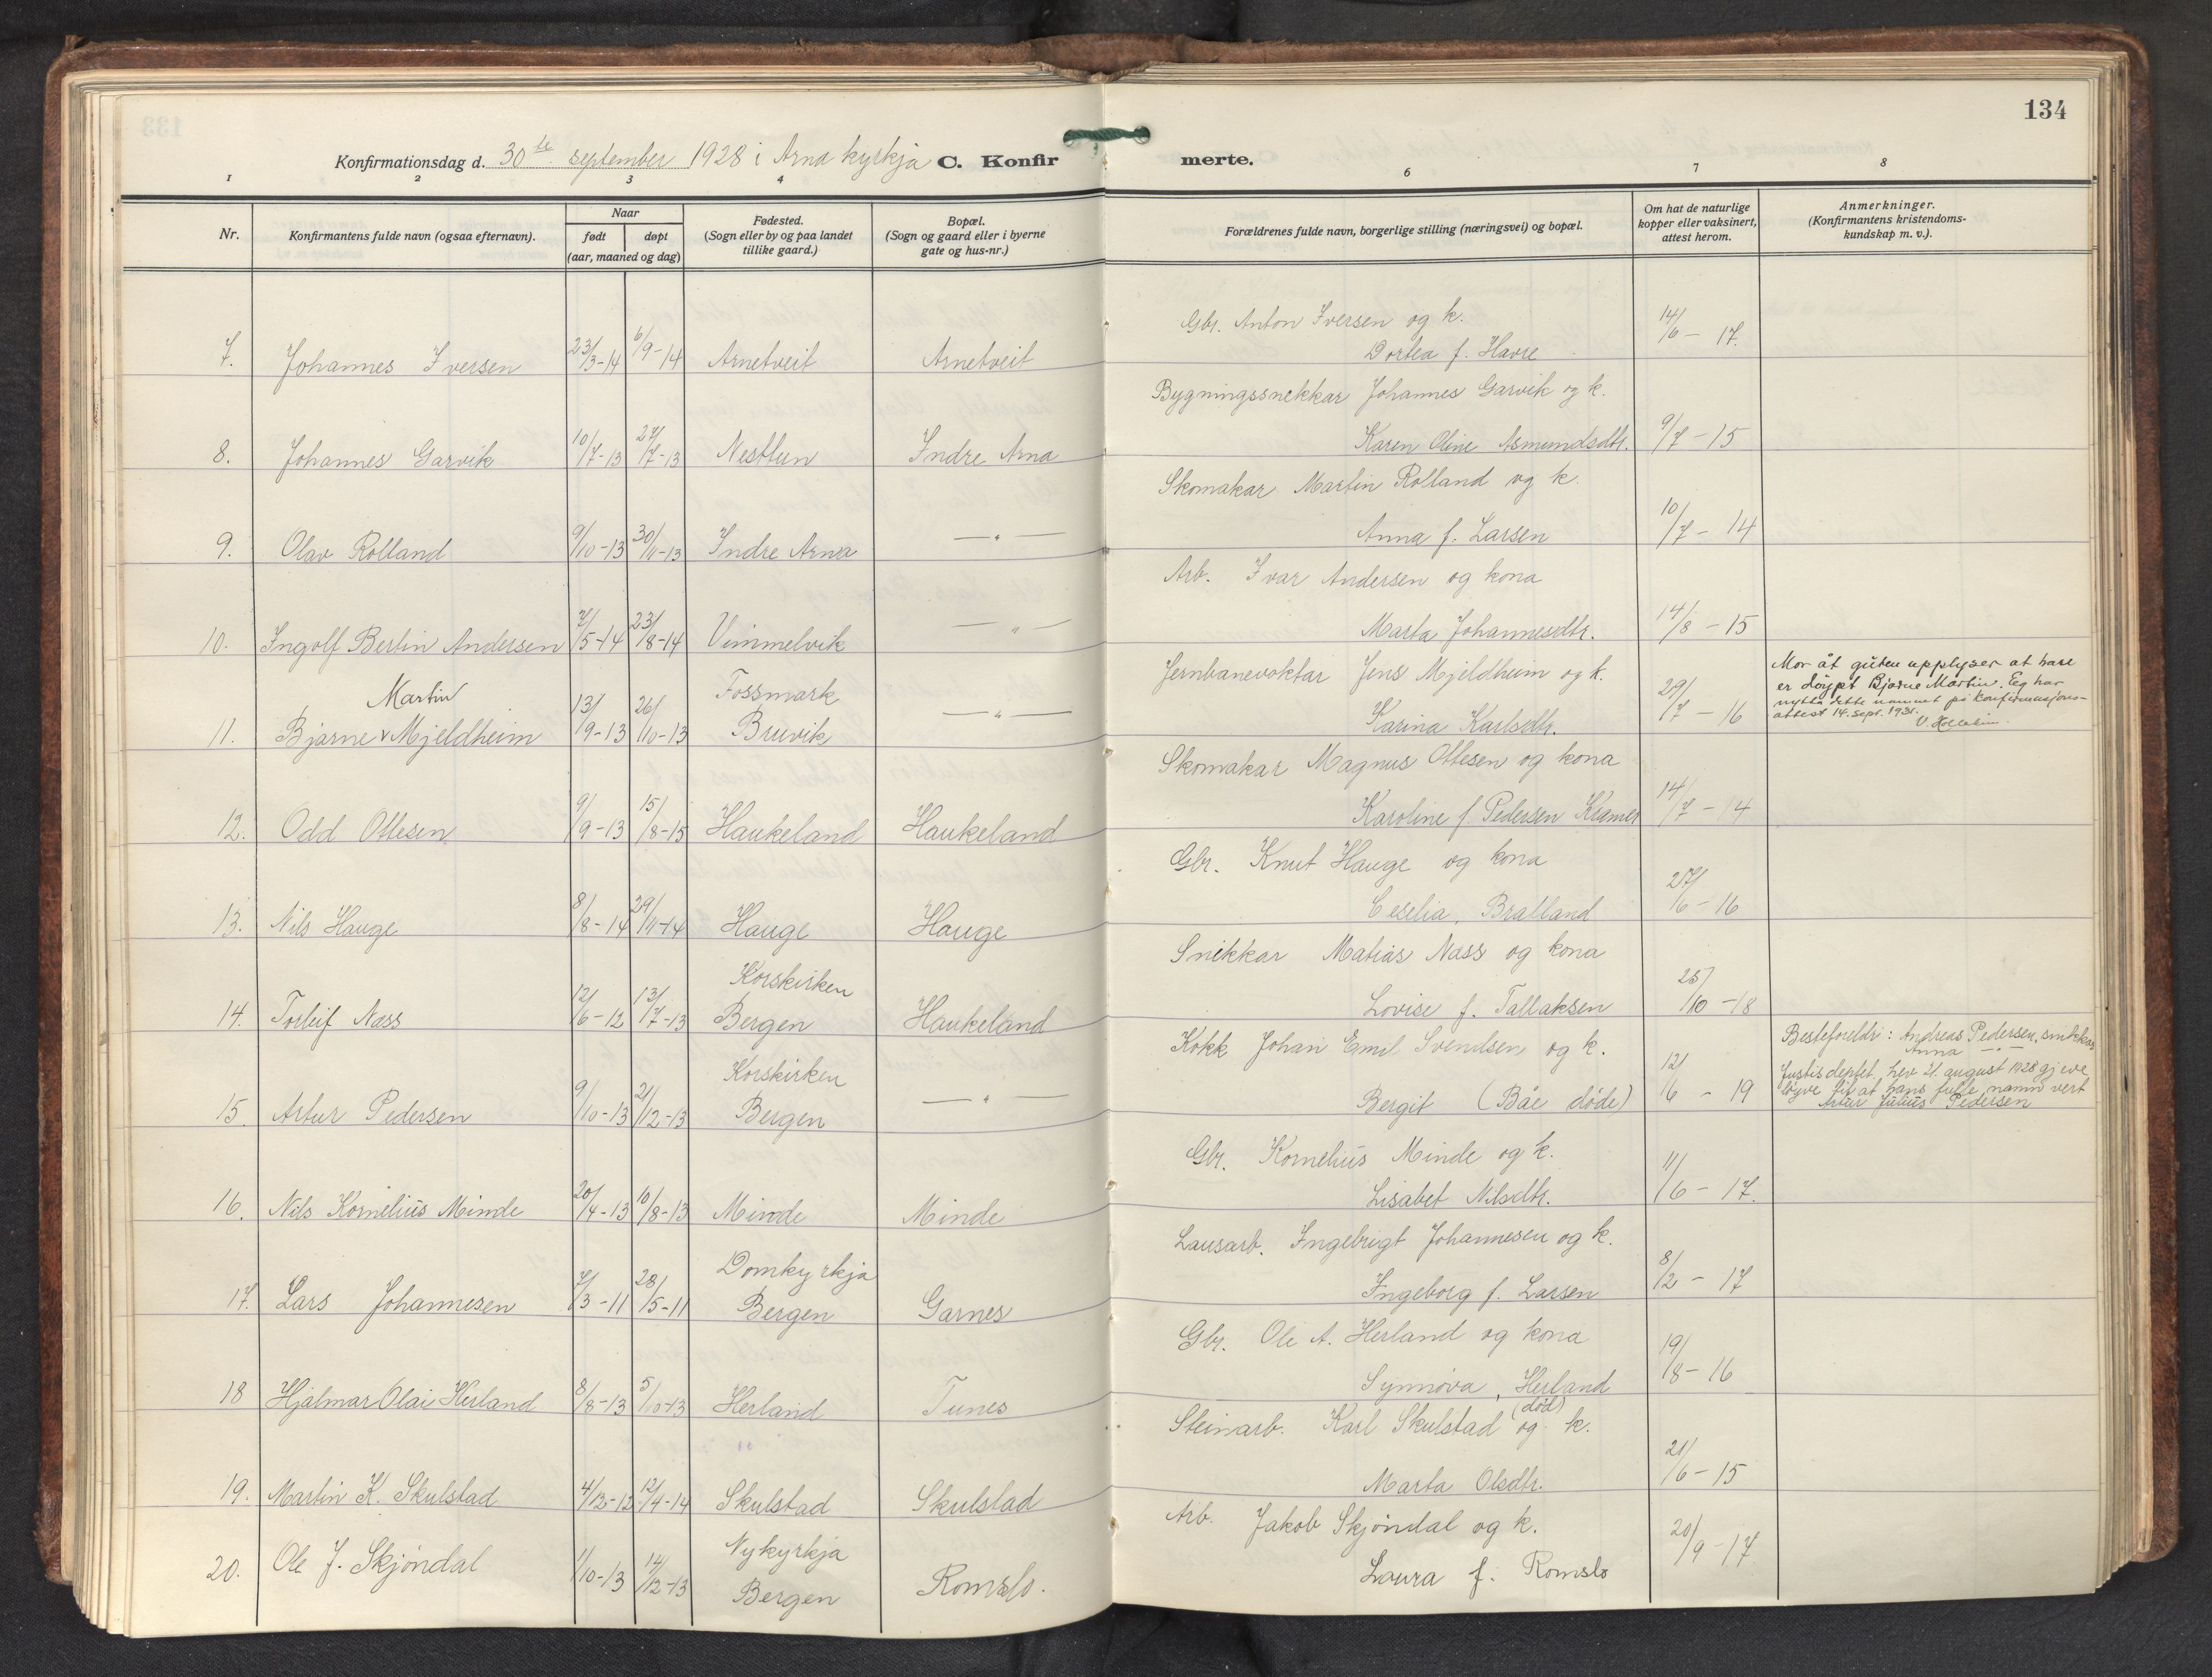 134
Konfirmationsdag d. 30te september 1928 i Arna kyrkja C. Konfirmerte.
1 2 3 4 6 7 8
Nr.
Konfirmantens fulde navn (ogsaa efternavn).
Naar
født døpt
(aar, maaned og dag)
Fødested.
(Sogn eller by og paa landet
tillike gaard.)
Bopæl.
(Sogn og gaard eller i byerne
gate og hus-nr.)
Forældrenes fulde navn, borgerlige stilling (næringsvei) og bopæl.
Om hat de naturlige
kopper eller vaksinert,
attest herom.
Anmerkninger.
(Konfirmantens kristendoms-
kundskap m. v.).
Gbr. Anton Iversen og k.
7. Johannes Iversen 23/3-14 6/9-14 Arnetveit Arnetveit Dortea f. Havre 14/6 - 17.
Bygningssnekkar Johannes Garvik og k.
8. Johannes Garvik 10/7-13 27/7-13 Nesttun Indre Arna Karen Oline Asmundsdtr. 9/7 - 15
Skomakar Martin Rolland og k.
9. Olav Rolland 9/10-13 30/11-13 Indre Arna — " — Anna f. Larsen 10/7 - 14
Arb. Ivar Andersen og kona
10. Ingolf Bertin Andersen 7/5-14 23/8-14 Vimmelvik — " — Marta Johannesdtr. 14/8 - 15
Martin Fossmark Jernbanevoktar Jens Mjeldheim og k.
11. Bjarne v Mjeldheim 13/9-13 26/10-13 Bruvik — " — Karina Karlsdtr. 29/7 - 16
Mor åt guten upplyser at hare
er døypt Bjarne Martin. Eg har
nytta dette namnet på konfirmasjons-
attest 14. sept. 1931.
Skomakar Magnus Ottesen og kona
12. Odd Ottesen. 9/9-13 15/8-15 Haukeland Haukeland Karoline f. Pedersen Kramer 14/7 - 14
Gbr. Knut Hauge og kona
13. Nils Hauge 8/8-14 29/11-14 Hauge Hauge Ceselia, Bratland 27/6 - 16
Korskirken Snikkar Matias Nass og kona
14. Torleif Nass 12/6-12 13/7-13 Bergen Haukeland Lovise f. Tallaksen 25/10 - 18
Korskirken Kokk Johan Emil Svendsen og k.
15. Artur Pedersen 9/10-13 21/12-13 Bergen — " — Bergit (Båe døde) 12/6 - 19
Besteforeldri: Andreas Pedersen, snikkar
Anna — " —
Justisdeptet. hev 21. august 1928 gjeve
løyve til at hans fulle namn vert
Artur Julius Pedersen
Gbr. Kornelius Minde og k.
16. Nils Kornelius Minde 20/4-13 10/8-13 Minde Minde Lisabet Nilsdtr. 11/6 - 17.
Domkyrkja Lausarb. Ingebrigt Johannesen og k.
17. Lars Johannesen 7/3-11 28/5-11 Bergen Garnes Ingeborg f. Larsen 8/2 - 17
Gbr. Ole A. Herland og kona
18 Hjalmar Olai Herland 8/8-13 5/10-13 Herland Tunes Synnøva, Herland 19/8 - 16
(død)
Steinarb. Karl Skulstad og k.
19. Martin K. Skulstad 4/12-12 12/4-14 Skulstad Skulstad Marta Olsdtr. 21/6 - 15
Nykyrkja Arb. Jakob Skjøndal og k.
20. Ole J. Skjøndal 1/10-13 14/12-13 Bergen Romslo. Laura f. Romslo 20/9 - 17